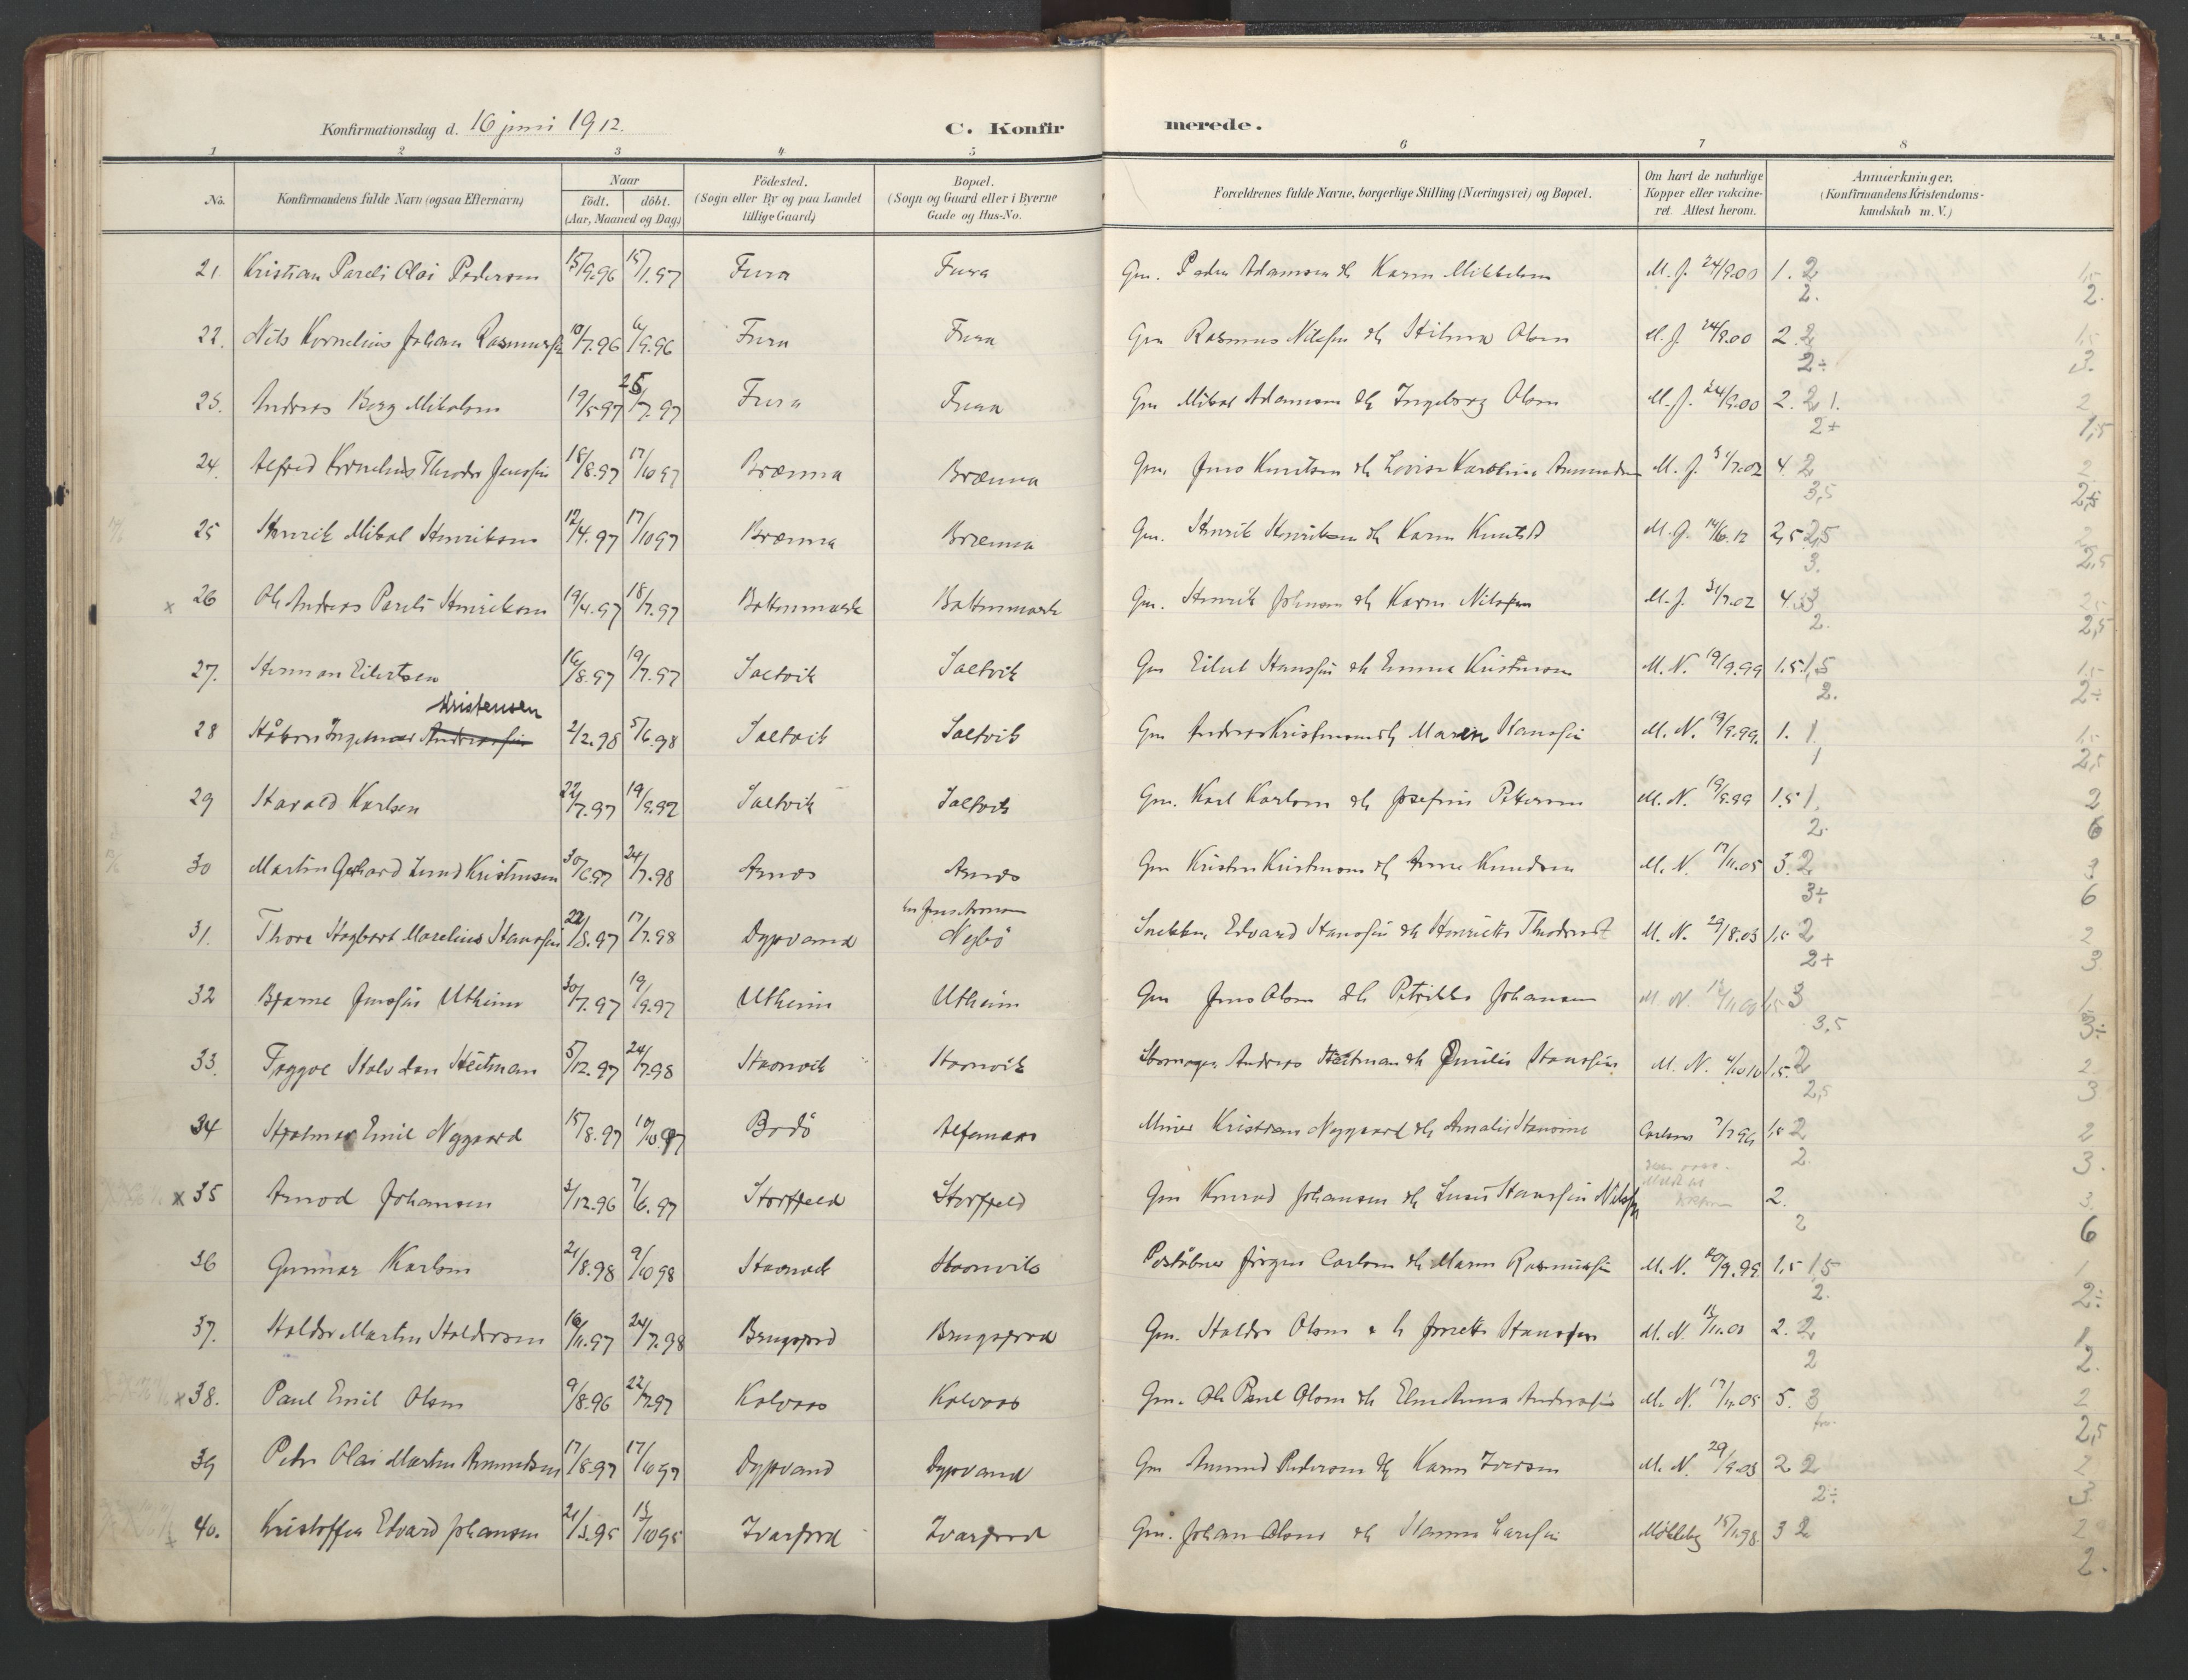 Konfirmationsdag d. 16 juni 1912.
C. Konfirmerede.
1 2 3 4 5 6 7 8
No. Konfirmandens fulde Navn (ogsaa Efternavn)
Naar
født. døbt.
(Aar, Maaned og Dag)
Fødested.
(Sogn eller By og paa Landet
tillige Gaard)
Bopæl.
(Sogn og Gaard eller i Byerne
Gade og Hus-No.
Forældrenes fulde Navne, borgerlige Stilling (Næringsvei) og Bopæl.
Om havt de naturlige
Kopper eller vakcine-
ret. Attest herom.
Anmærkninger,
(Konfirmandens Kristendoms-
kundskab m. V.)
21. Kristian Pareli Olai Pedersen 15/9.96 15/1.97 Fura Fura Gm. Peder Adamsen & h Karen Mikkelsen M. J. 24/9.00 1. 2 2.
22. Nils Kornelius Johan Rasmussen 10/7.96 6/9.96 Fura Fura Gm Rasmus Nilssen & h Hilma Olsen M. J. 24/9.00 2. 2 2÷
23. Andreas Berg Mikalsen 19/5 97 25/7.97 Fura Fura Gm Mikal Adamsen & h Ingeborg Olsen M. J. 24/9.00 2. 2 1. 2+
24. Alfred Kornelius Theodor Jenssen 18/8.97 17/10 97 Brænna Brænna Gm. Jens Knutsen & h Lovise Karoline Amundsen M. J. 31/7.02 4. 2 3,5
25 Henrik Mikal Henriksen 12/4.97 17/10 97 Brænna Brænna Gm. Henrik Henriksen & h Karen Knutsd M. J. 14/6.12 2,5 2,5 3.
x 26 Ole Andreas Pareli Henriksen 19/4.97 18/7.97 Bottenmark Bottenmark Gm. Henrik Johnsen & h Karen Nilssen M. J. 31/7.02 4. 2.
27. Herman Eilertsen 16/8.97 19/9.97 Saltvik Saltvik Gm Eilert Hanssen & h Emma Kristensen M. N. 19/9.99 1.5. 1,5 2.
Kristensen
28 Håkon Ingemar Anderssen 2/2.98 5/6.98 Saltvik Saltvik Gm Andreas Kristensen & h Maren Hanssen M. N. 19/9.99. 1. 1. 1
29 Harald Karlsen 22/7.97 19/9.97 Saltvik Saltvik Gm. Karl Karlsen & h Josefine Pettersen M. N. 19/9.99 1.5 1. 2.
30 Martin Gerhard Lund Kristensen 30/6.97 24/7.98 Arnes Arnes Gm Kristen Kristensen & h Anne Knudsen M. N. 17/11.05 3. 2 3÷
31. Thore Hagbart Marelius Hanssen 22/8.97 17/7.98 Dypvand Nybø Snekker Edvard Hanssen & h Henriette Theodorsd M. N. 29/8.03 1,5 2 2+
32 Bjarne Jenssen Utheim 30/7.97 19/9.97 Utheim Utheim Gm Jens Olsen & h Petrikke Johansen M. N. 3 3,5
33. Tryggve Halvdan Heitman 5/12.97 24/7.98 Havnvik Havnvik Skomager Andreas Heitman & h Emilie Hanssen M. N. 4/10 10 1.5. 2 2,5
34 Hjalmar Emil Nygaard 15/8.97 10/10 97 Bodø Alfanæs Miner Kristian Nygaard & h Amalie Hansine Carlsen 7/7 96 1,5 2 2.
x 35 Arnold Johansen 3/12.96 7/6.97 Storffeld Storffeld Gm Konrad Johansen & h Hanssine Nilssen 2. 2
36 Gunnar Karlsen 21/8.98 9/10 98 Havnvik Havnvik Postaabner Jørgen Carlsen & h Maren Rasmussen M. N. 20/9.99. 1,5 1,5 2.
37. Haldor Martin Haldorsen 16/11.97 24/7.98 Brugsjord Brugsfjord Gm. Haldor Olsen & h Jensette Hanssen M. N. 13/11.00 2. 2 2
x 38. Paul Emil Olsen 9/8.96 22/7.97 Kalvaas Kalvaas Gm. Ole Paul Olsen & h Elen Anna Anderssen M. N. 17/11.05 5. 3
39 Peder Olai Martin Amundsen 17/8.97 17/10 97 Dypvand Dypvand Gm Amund Pedersen & h Karen Iversen M. N. 29/9.03 2 2 2÷
40. Kristoffer Edvard Johansen 21/3.95 13/10 95 Ivarfjord Ivarfjord Gm. Johan Olsen & h Hanna Larssen Mökleby 15/1.98. 3 2